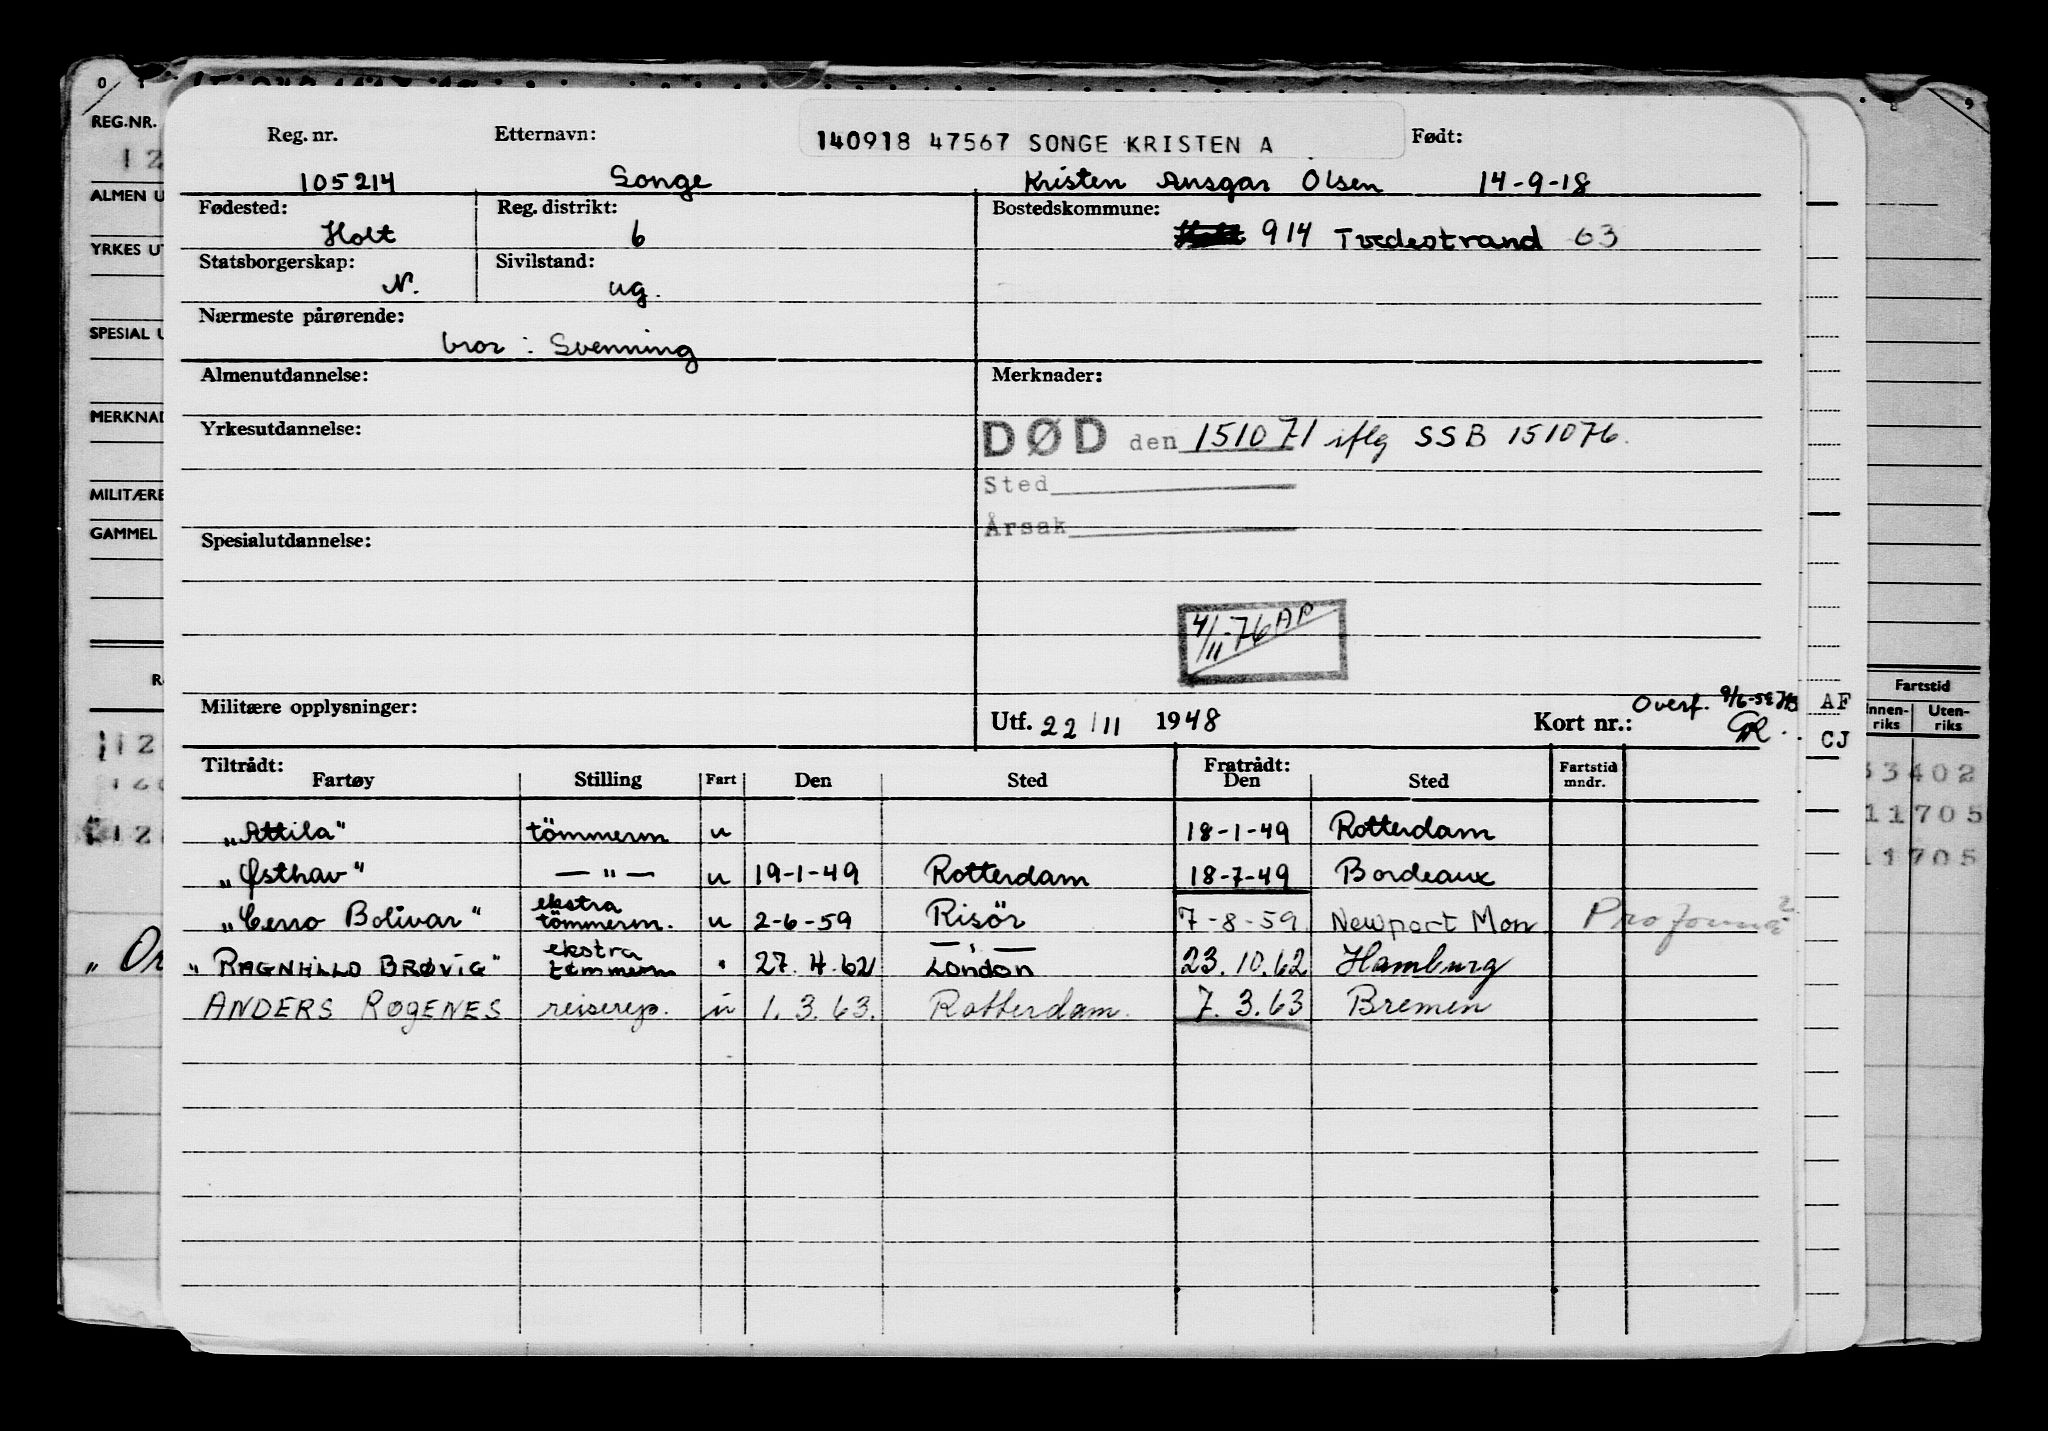 REG.NR.
12
ALMEN U
YRKES UT
SPESIAL U
MERKNAD
MILITÆRE
GAMMEL
Reg. nr. Etternavn: 140918 47567 SONGE KRISTEN A Født:
105214 Songe Kristen Ansgar Olsen 14-9-18
Fødested: Reg. distrikt: Bostedskommune:
Holt 6 914 Tvedestrand 63
Statsborgerskap: Sivilstand:
N. ug.
Nærmeste pårørende:
bror : Svenning
Almenutdannelse: Merknader:
Yrkesutdannelse:
DØD den 151071 iflg SSB 151076.
Sted
Årsak
Spesialutdannelse:
4/11-76 AP
Militære opplysninger: Utf. 22/11 1948 Kort nr.: Overf.
AF
CJ
Fartstid
Innen-riks Uten-riks
33402
11705
11705
Tiltrådt: Fratrådt:
Fartøy Stilling Fart Den Sted Den Sted Fartstid mndr.
„Attila" tömmerm u 18-1-49 Rotterdam
„Østhav" — " — u 19-1-49 Rotterdam 18-7-49 Bordeaux
„Cerro Bolivar" ekstra tömmerm. u 2-6-59 Risör 7-8-59 Newport Mon Proforma ?
„RAGNHILD BRØVIG" ekstra tömmerm " 27.4.62 London 23.10.62 Hamburg
ANDERS ROGENES reiserep. u 1.3.63. Rotterdam. 7.3.63 Bremen